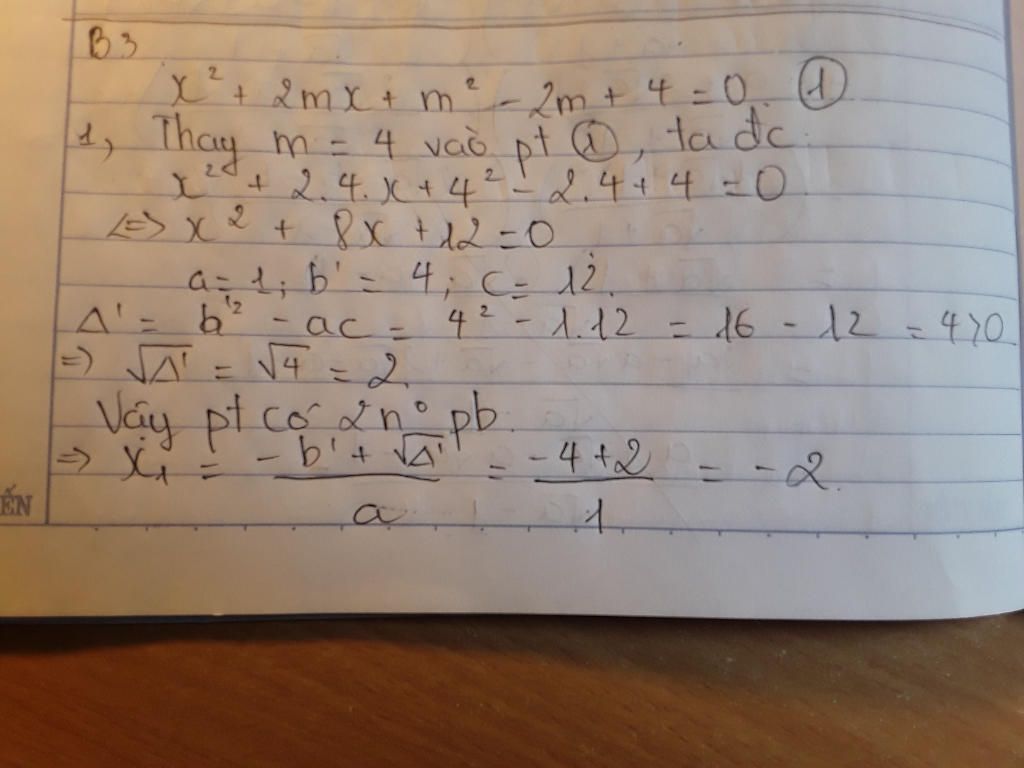 B3
x² + 2mx + m² - 2m + 4 = 0. ①
1, Thay m = 4 vào pt ①, ta đc:
x² + 2.4.x + 4² - 2.4 + 4 = 0
<=> x² + 8x + 12 = 0
a = 1; b' = 4; c = 12.
Δ' = b'² - ac = 4² - 1.12 = 16 - 12 = 4 > 0
=> √Δ' = √4 = 2.
Vậy pt có 2 n° pb:
=> x₁ = (-b' + √Δ')/a = (-4 + 2)/1 = -2.
ẾN